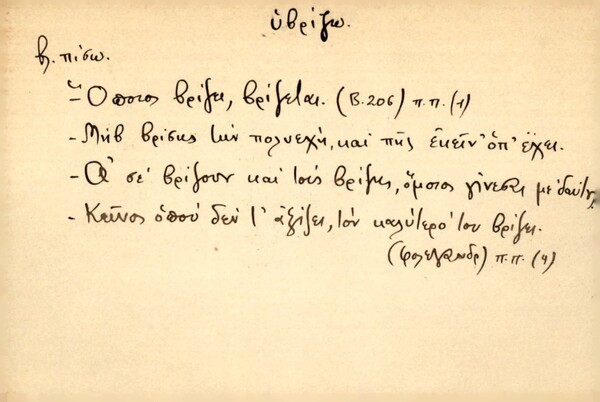 ὑβρίζω.
βλ. πίσω.
- Ὅποιος βρίζει, βρίζεται. (Β.206) π.π. (1)
- Μὴ βρίσῃς τὴν πολυεχῆ, καὶ πῇς ἐκεῖν' ὅπ' ἔχει.
- Ἂ σὲ βρίζουν καὶ τοὺς βρίζῃς, ὅμοιος γίνεσαι μὲ δαύτους
- Κεῖνος ὁποὺ δὲν τ' ἀξίζει, τὸν καλύτερό του βρίζει.
(Φολέγανδρ) π.π. (4)